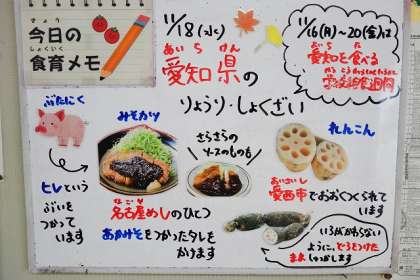 きょう
今日の
しょくいく
食育メモ
11/18(水)
あいちけん
愛知県の
りょうり・しょくざい
11/16(月)～20(金)は
あいち た
愛知を食べる
学校給食週間
ぶたにく
ヒレという
ぶいを
つかって
います
みそカツ
なごや
名古屋めしのひとつ
あかみそをつかったタレを
かけます
さらさらの
ソースのものも
れんこん
あいさいし
愛西市でおおくつくられて
います
いろがかわらない
ように、どろをつけた
まましゅっかします